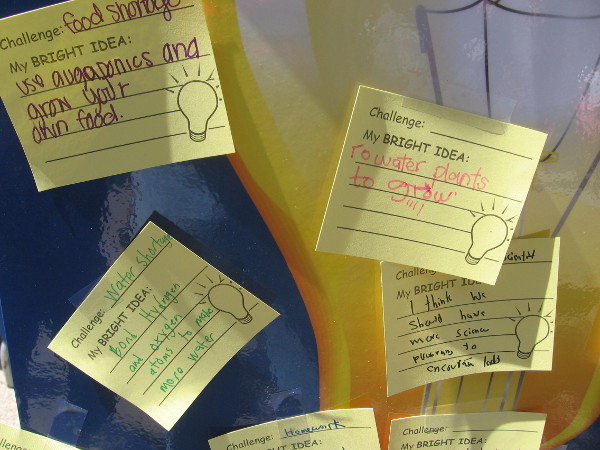 Challenge: food shortage
My BRIGHT IDEA:
use auqaponics and
grow your
own food.
Challenge:
My BRIGHT IDEA:
to water plants
to grow
Challenge: Water Shortage
My BRIGHT IDEA:
Bond Hydrogen
and oxygen
atoms to make
more water
Challenge:
My BRIGHT IDEA:
I think we
should have
more science
programs to
encourage kids
Challenge: Homework
My BRIGHT IDEA:
Challenge:
My BRIGHT IDEA: